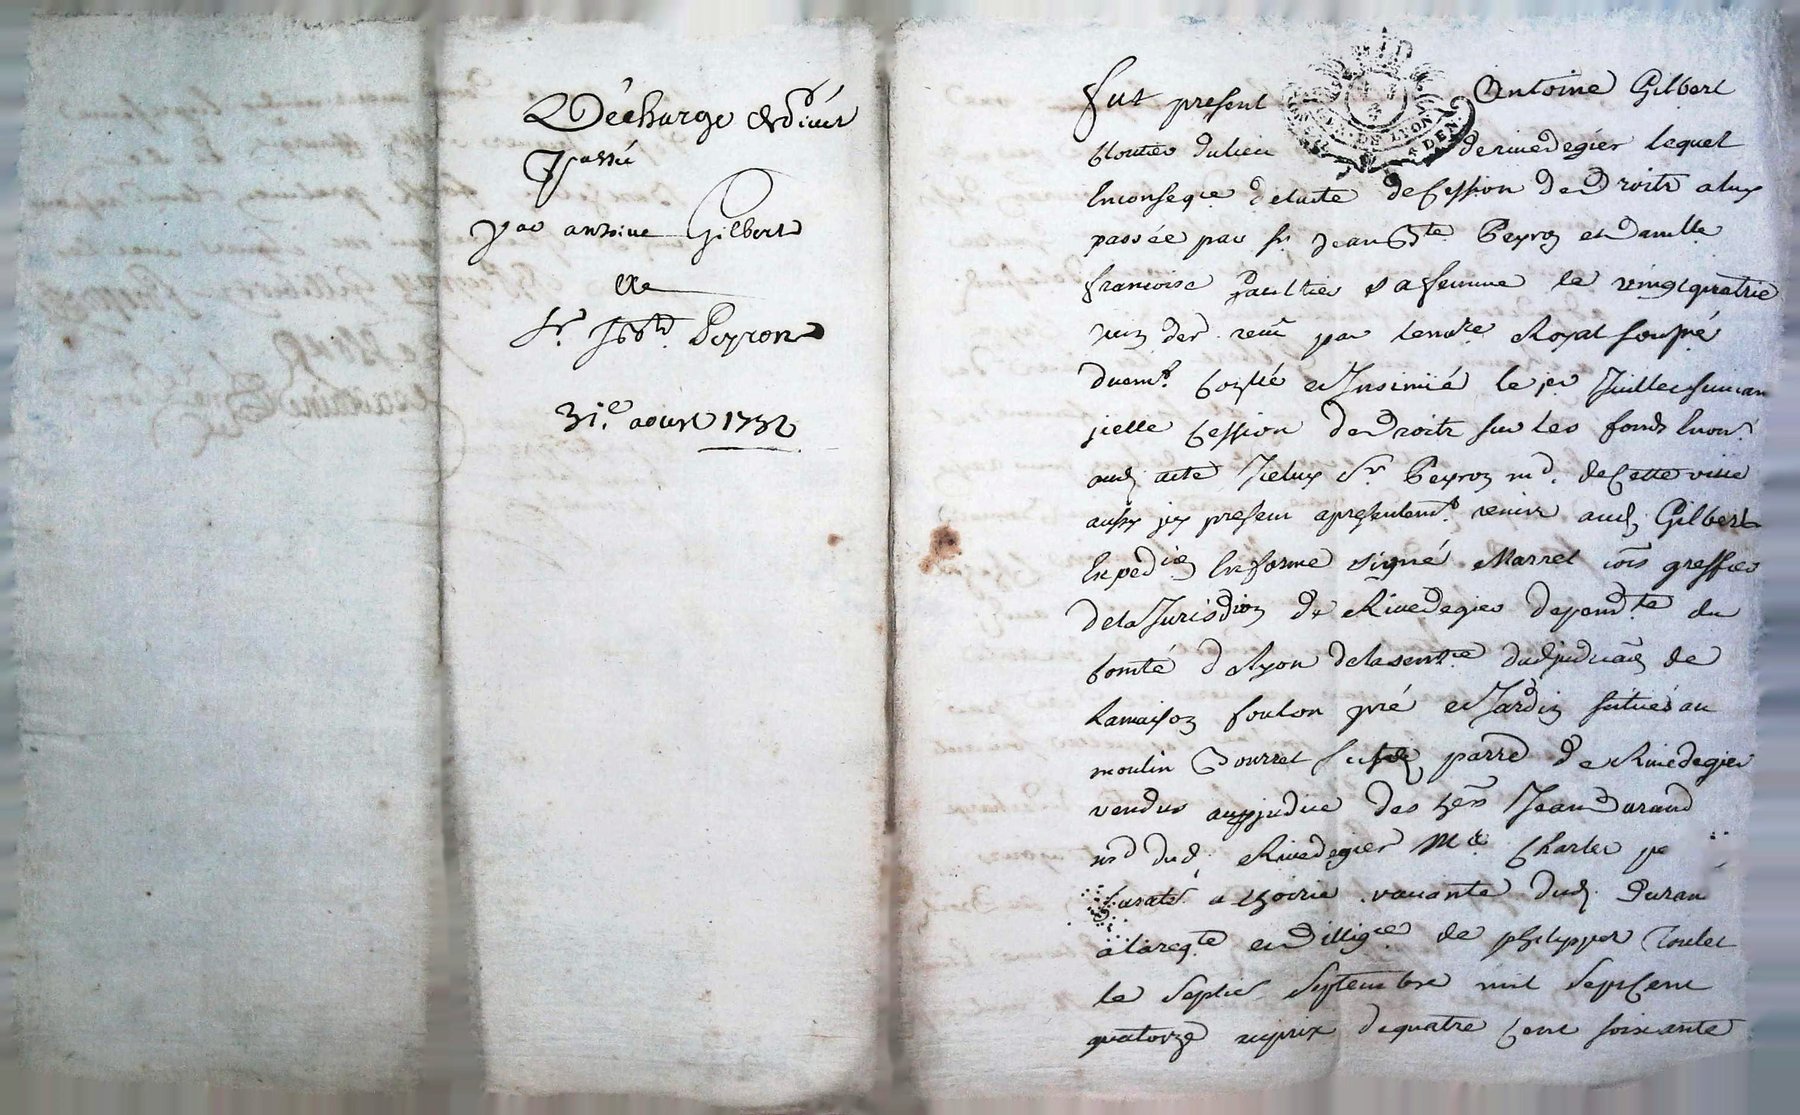 Décharge
Passé
par antoine Gilbert
De
Sr. Jbte. Peyron
31e. aoust 1732
fut present Antoine Gilbert
cloutier du lieu de rivedegier lequel
en conseqce de lacte de cession de droits a luy
passée par sr. jean Bte. Peyron et damlle
francoise sa femme le vingt quatrie
juin der. receu par le nore Royal soussné
duemt. conllé et Insinué le jer Juillet suivan
jcelle cession de droits sur les fonds Enon.
aud acte Jceluy Sr Peyron md. de cette ville
aussy jcy present apresentemt. remis aud Gilbert
Expedion En forme signé Marrel greffier
de la Jurisdion de Rivedegier dependte du
comté de Lyon de la sentce dadjudicaon de
la maison foulon pré et Jardin situés au
moulin parre de Rivedegier
vendus au préjudice des Jean Durand
md dud. Rivedegier Me Charles
Curateur a hoirie vacante dud Duran
a la reqte et dilligce de philippes
le septie Septembre mil sept cent
quatorze au prix de quatre cent soixante